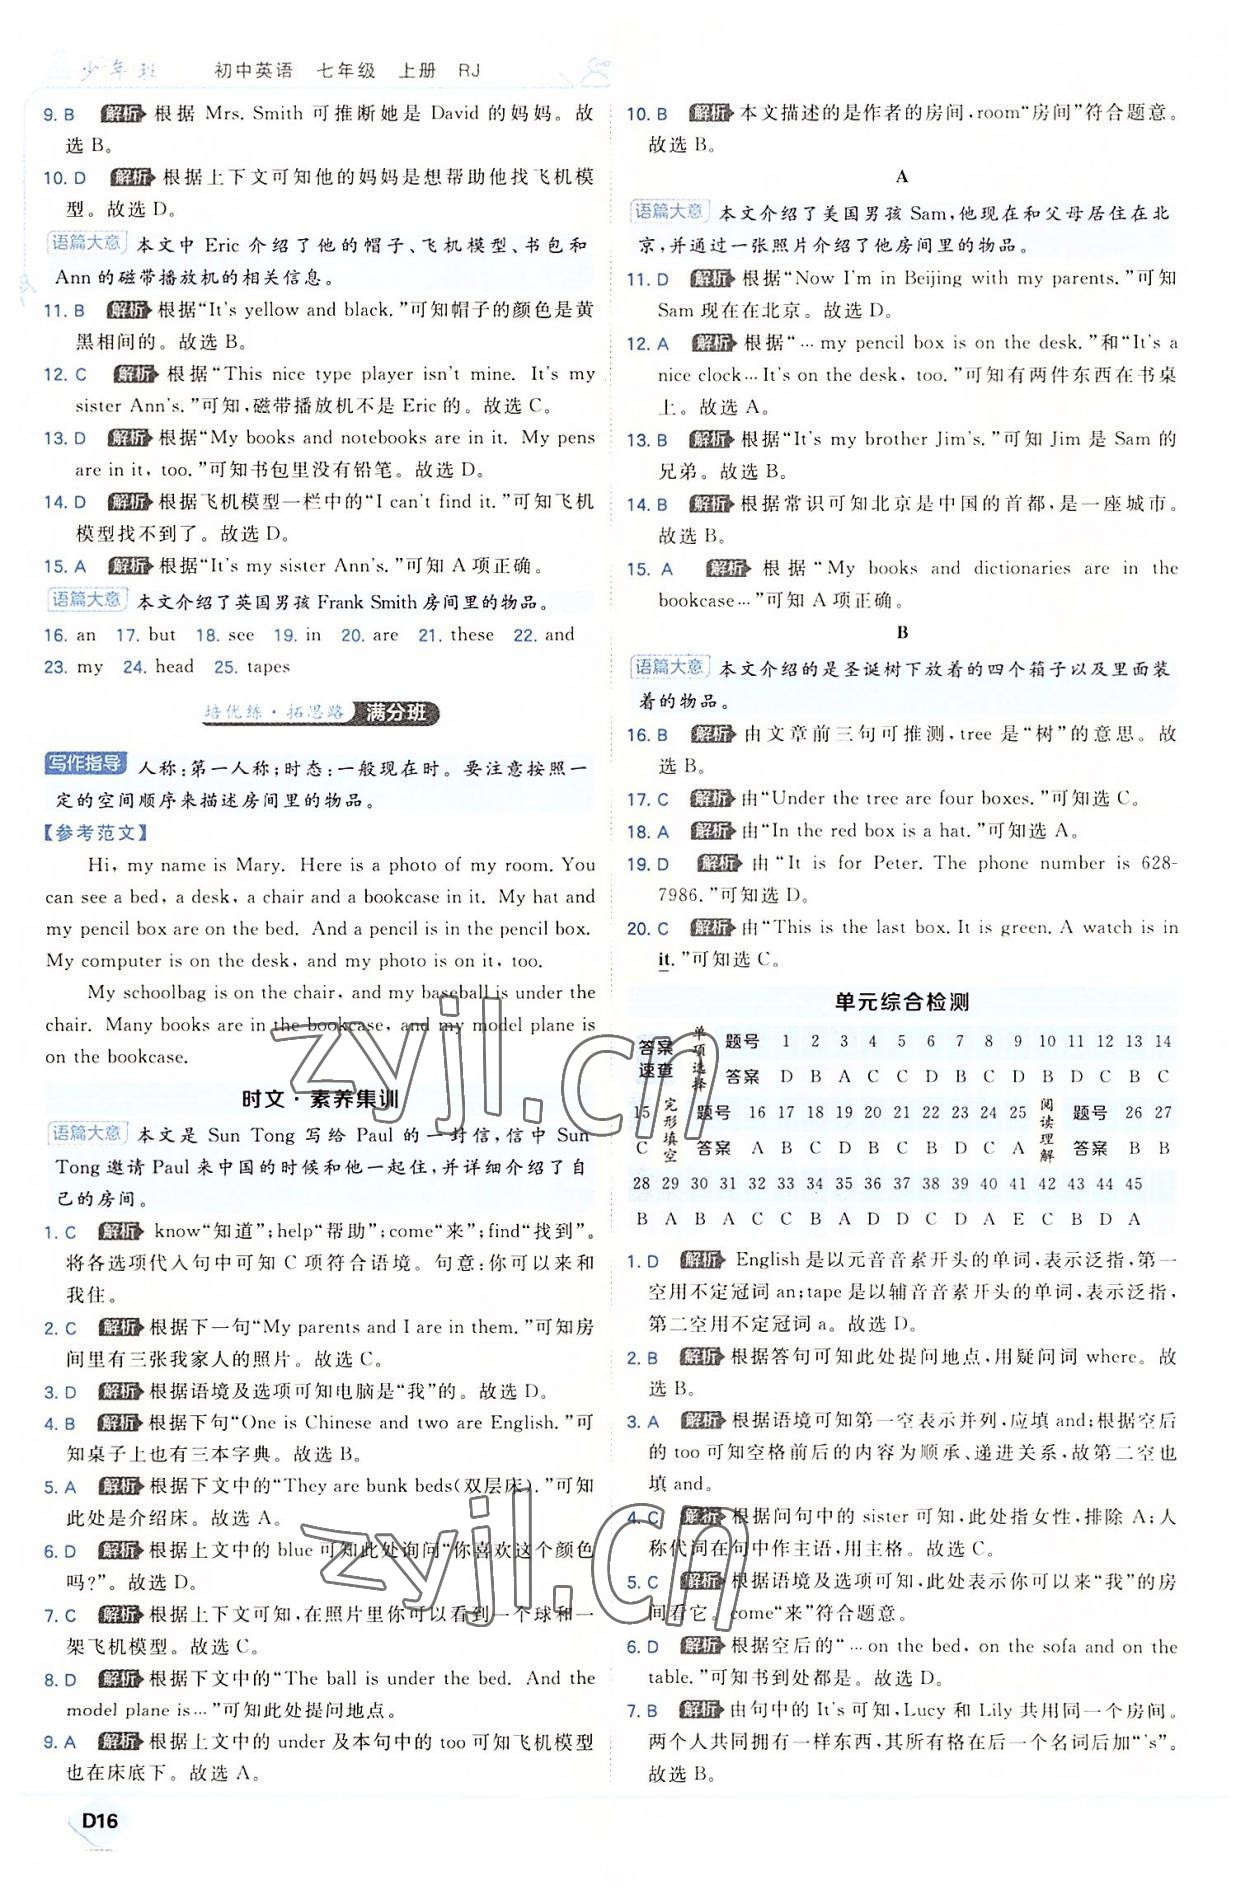 少年班 初中英语 七年级 上册 RJ
9. B 解析 根据 Mrs. Smith 可推断她是 David 的妈妈。故
选 B。
10. D 解析 根据上下文可知他的妈妈是想帮助他找飞机模
型。故选 D。
语篇大意 本文中 Eric 介绍了他的帽子、飞机模型、书包和
Ann 的磁带播放机的相关信息。
11. B 解析 根据“It's yellow and black.”可知帽子的颜色是黄
黑相间的。故选 B。
12. C 解析 根据“This nice type player isn't mine. It's my
sister Ann's.”可知,磁带播放机不是 Eric 的。故选 C。
13. D 解析 根据“My books and notebooks are in it. My pens
are in it, too.”可知书包里没有铅笔。故选 D。
14. D 解析 根据飞机模型一栏中的“I can't find it.”可知飞机
模型找不到了。故选 D。
15. A 解析 根据“It's my sister Ann's.”可知 A 项正确。
语篇大意 本文介绍了英国男孩 Frank Smith 房间里的物品。
16. an 17. but 18. see 19. in 20. are 21. these 22. and
23. my 24. head 25. tapes
培优练·拓思路 满分班
写作指导 人称:第一人称;时态:一般现在时。要注意按照一
定的空间顺序来描述房间里的物品。
【参考范文】
Hi, my name is Mary. Here is a photo of my room. You
can see a bed, a desk, a chair and a bookcase in it. My hat and
my pencil box are on the bed. And a pencil is in the pencil box.
My computer is on the desk, and my photo is on it, too.
My schoolbag is on the chair, and my baseball is under the
chair. Many books are in the bookcase, and my model plane is
on the bookcase.
时文·素养集训
语篇大意 本文是 Sun Tong 写给 Paul 的一封信,信中 Sun
Tong 邀请 Paul 来中国的时候和他一起住,并详细介绍了自
己的房间。
1. C 解析 know“知道”;help“帮助”;come“来”;find“找到”。
将各选项代入句中可知 C 项符合语境。句意:你可以来和
我住。
2. C 解析 根据下一句“My parents and I are in them.”可知房
间里有三张我家人的照片。故选 C。
3. D 解析 根据语境及选项可知电脑是“我”的。故选 D。
4. B 解析 根据下句“One is Chinese and two are English.”可
知桌子上也有三本字典。故选 B。
5. A 解析 根据下文中的“They are bunk beds(双层床).”可知
此处是介绍床。故选 A。
6. D 解析 根据上文中的 blue 可知此处询问“你喜欢这个颜色
吗?”。故选 D。
7. C 解析 根据上下文可知,在照片里你可以看到一个球和一
架飞机模型。故选 C。
8. D 解析 根据下文中的“The ball is under the bed. And the
model plane is…”可知此处提问地点。
9. A 解析 根据上文中的 under 及本句中的 too 可知飞机模型
也在床底下。故选 A。
10. B 解析 本文描述的是作者的房间,room“房间”符合题意。
故选 B。
A
语篇大意 本文介绍了美国男孩 Sam,他现在和父母居住在北
京,并通过一张照片介绍了他房间里的物品。
11. D 解析 根据“Now I'm in Beijing with my parents.”可知
Sam 现在在北京。故选 D。
12. A 解析 根据“… my pencil box is on the desk.”和“It's a
nice clock…It's on the desk, too.”可知有两件东西在书桌
上。故选 A。
13. B 解析 根据“It's my brother Jim's.”可知 Jim 是 Sam 的
兄弟。故选 B。
14. B 解析 根据常识可知北京是中国的首都,是一座城市。
故选 B。
15. A 解析 根据“My books and dictionaries are in the
bookcase…”可知 A 项正确。
B
语篇大意 本文介绍的是圣诞树下放着的四个箱子以及里面装
着的物品。
16. B 解析 由文章前三句可推测,tree 是“树”的意思。故
选 B。
17. C 解析 由“Under the tree are four boxes.”可知选 C。
18. A 解析 由“In the red box is a hat.”可知选 A。
19. D 解析 由“It is for Peter. The phone number is 628-
7986.”可知选 D。
20. C 解析 由“This is the last box. It is green. A watch is in
it.”可知选 C。
单元综合检测
答案速查 单项选择 题号 1 2 3 4 5 6 7 8 9 10 11 12 13 14
答案 D B A C C D B C C B D C B C
15 完形填空 题号 16 17 18 19 20 21 22 23 24 25 阅读理解 题号 26 27
C 答案 A B C D B C B D C A 答案 B B
28 29 30 31 32 33 34 35 36 37 38 39 40 41 42 43 44 45
B A B A C C B A D D C D A E C B D A
1. D 解析 English 是以元音音素开头的单词,表示泛指,第一
空用不定冠词 an;tape 是以辅音音素开头的单词,表示泛指,
第二空用不定冠词 a。故选 D。
2. B 解析 根据答句可知此处提问地点,用疑问词 where。故
选 B。
3. A 解析 根据语境可知第一空表示并列,应填 and;根据空后
的 too 可知空格前后的内容为顺承、递进关系,故第二空也
填 and。
4. C 解析 根据问句中的 sister 可知,此处指女性,排除 A;人
称代词在句中作主语,用主格。故选 C。
5. C 解析 根据语境及选项可知,此处表示你可以来“我”的房
间看它。come“来”符合题意。
6. D 解析 根据空后的“…on the bed, on the sofa and on the
table.”可知书到处都是。故选 D。
7. B 解析 由句中的 It's 可知,Lucy 和 Lily 共用同一个房间。
两个人共同拥有一样东西,其所有格在后一个名词后加“'s”。
故选 B。
D16
zyjl.cn
zyjl.cn